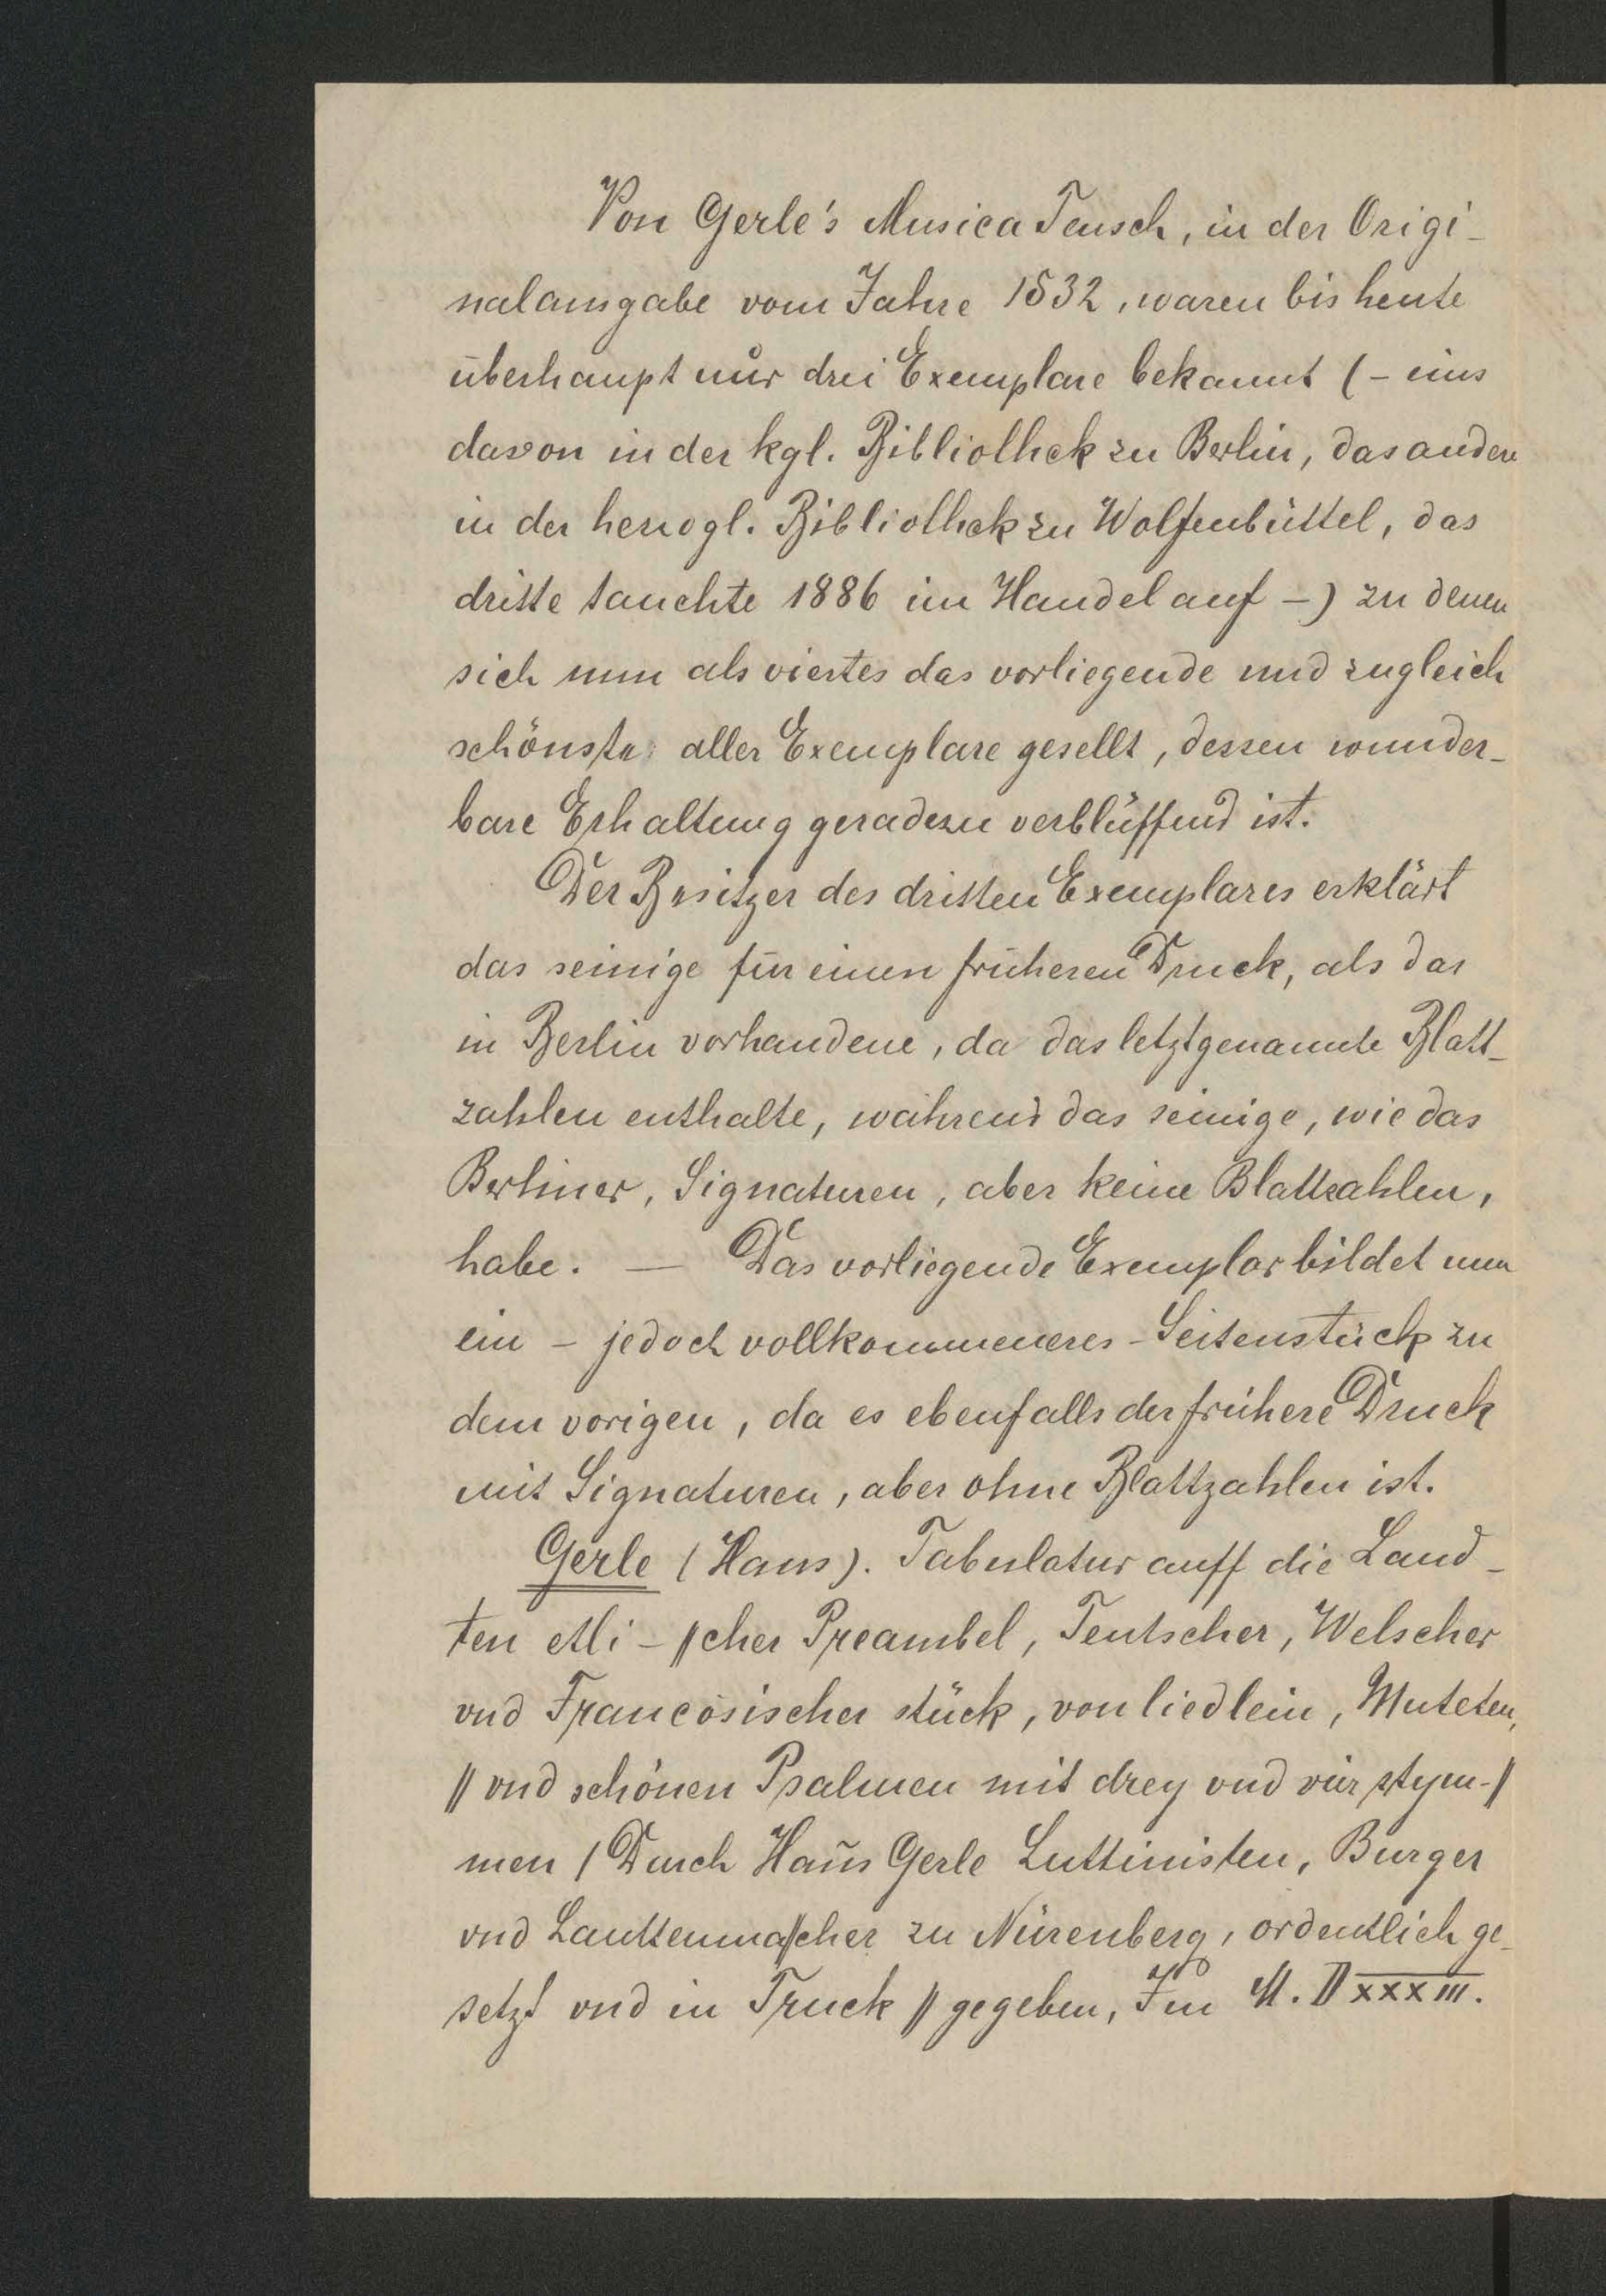 Von Gerle's Musica Teusch, in der Origi-
nalausgabe vom Jahre 1532, waren bis heute
überhaupt nur drei Exemplare bekannt (- eins
davon in der kgl. Bibliothek zu Berlin, das andere
in der herzogl. Bibliothek zu Wolfenbüttel, das
dritte tauchte 1886 im Handel auf -) zu denen
sich nun als viertes das vorliegende und zugleich
schönste aller Exemplare gesellt, dessen wunder-
bare Erhaltung geradezu verblüffend ist.
Der Besitzer des dritten Exemplares erklärt
das seinige für einen früheren Druck, als das
in Berlin vorhandene, da das letztgenannte Blatt-
zahlen enthalte, während das seinige, wie das
Berliner, Signaturen, aber keine Blattzahlen,
habe. — Das vorliegende Exemplar bildet nun
ein - jedoch vollkommeneres - Seitenstück zu
dem vorigen, da es ebenfalls der frühere Druck
mit Signaturen, aber ohne Blattzahlen ist.
Gerle (Hans). Tabulatur auff die Laud-
ten etli-||cher Preambel, Teutscher, Welscher
vnd Francösischer stück, von liedlein, Muteten,
|| vnd schönen Psalmen mit drey vnd vier stym-||
men / Durch Hañs Gerle Luttinisten, Burger
vnd Lauttenma||cher zu Nürenberg, ordentlich ge-
setzt vnd in Truck || gegeben, Im M. D xxxiii.